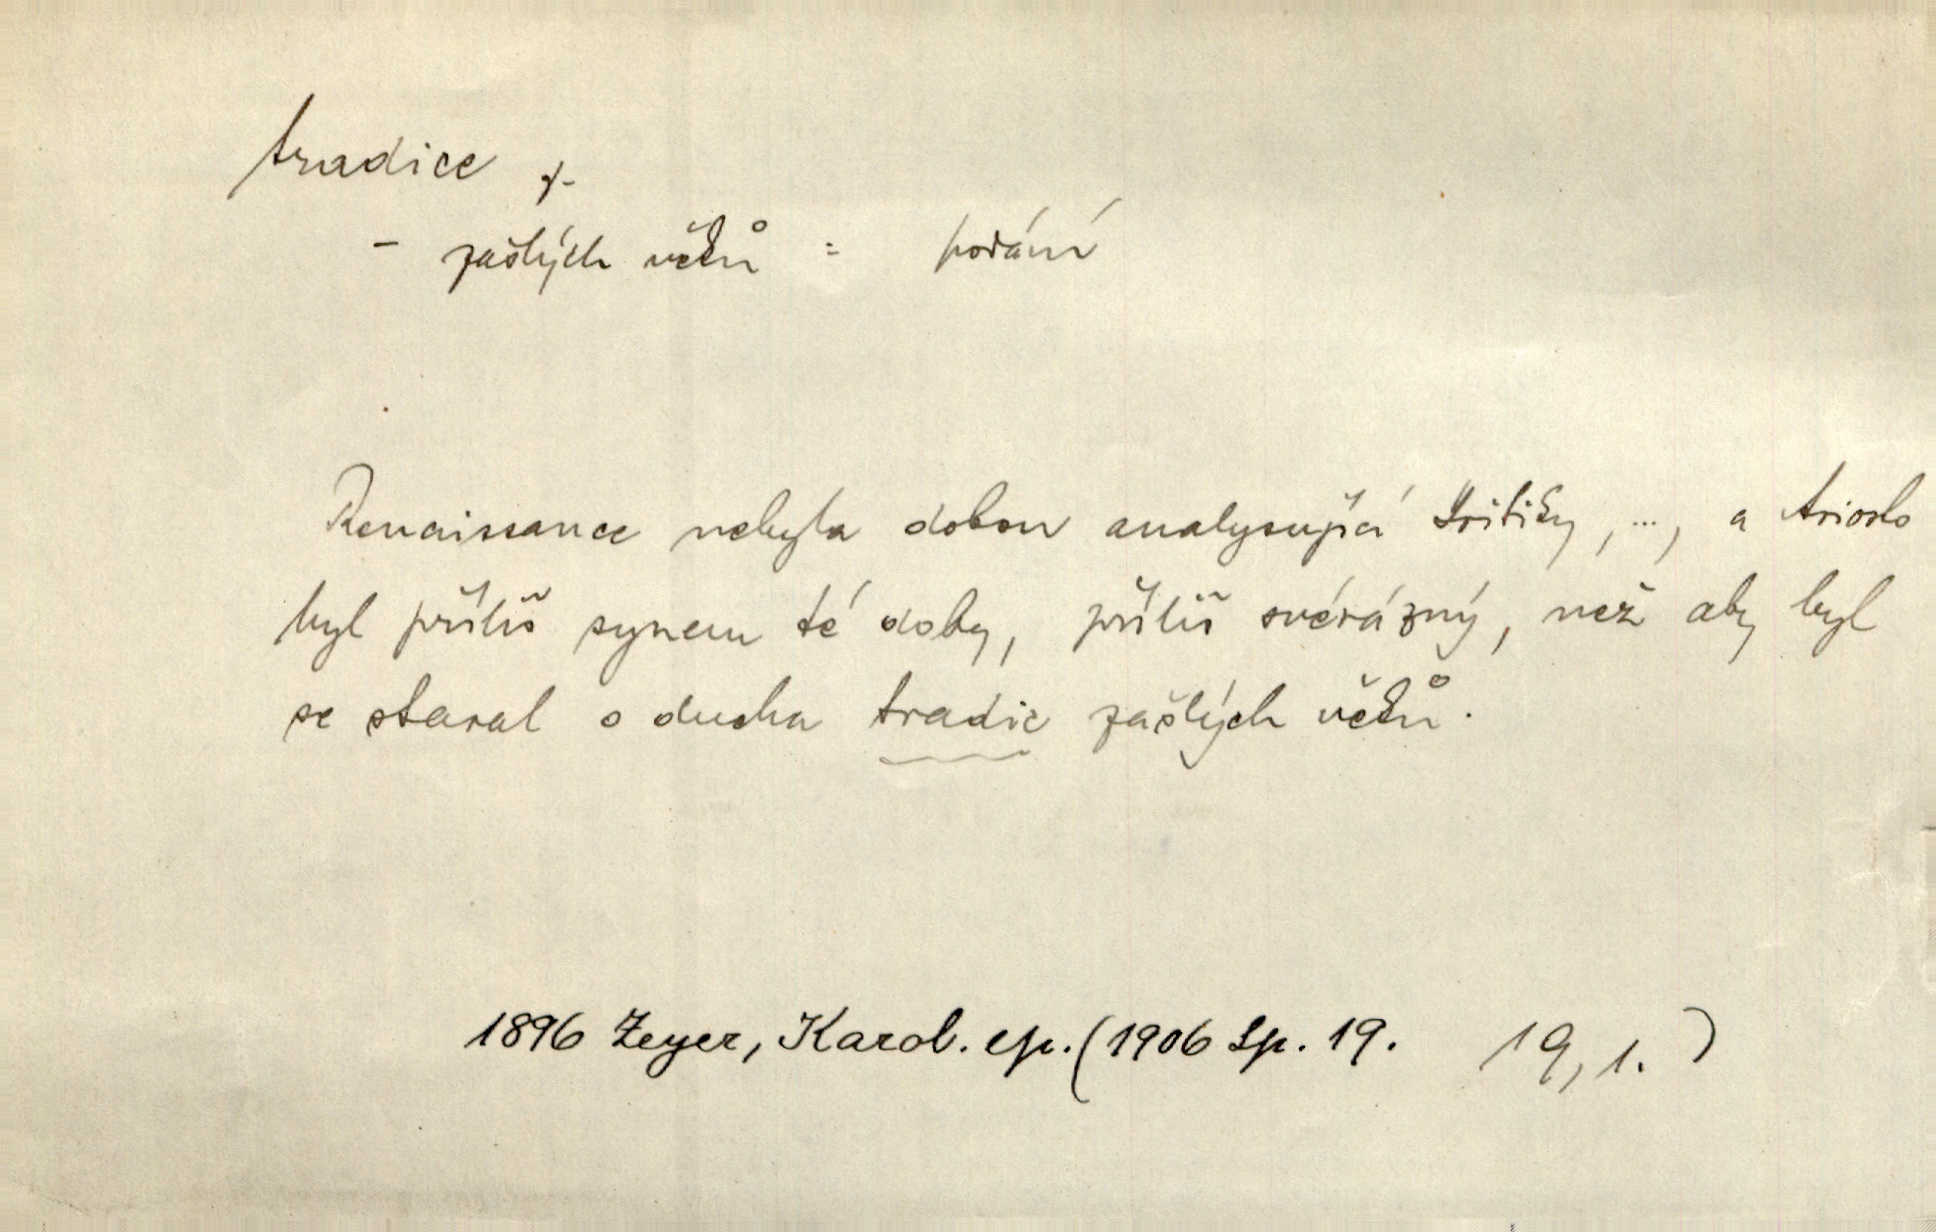 tradice f.
- zašlých věků = podání
Renaissance nebyla dobou analysující kritiky, ..., a Ariosto
byl příliš synem té doby, příliš svérázný, než aby byl
se staral o ducha tradic zašlých věků.
1896 Zeyer, Karol. ep. (1906 Sp. 19. 19, 1. )